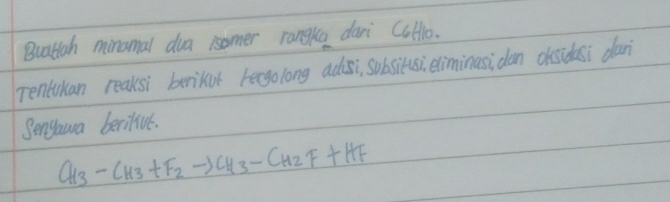 Buatlah minamal dua isomer rangka dari C6H10.
Tentukan reaksi berikut tergolong adisi, subsitusi, eliminasi, dan oksidasi dari
Senyawa berikut.
CH3 - CH3 + F2 -> CH3 - CH2F + HF